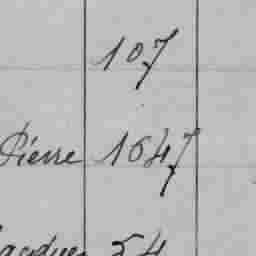 107
Pierre 1647
Jacques 54